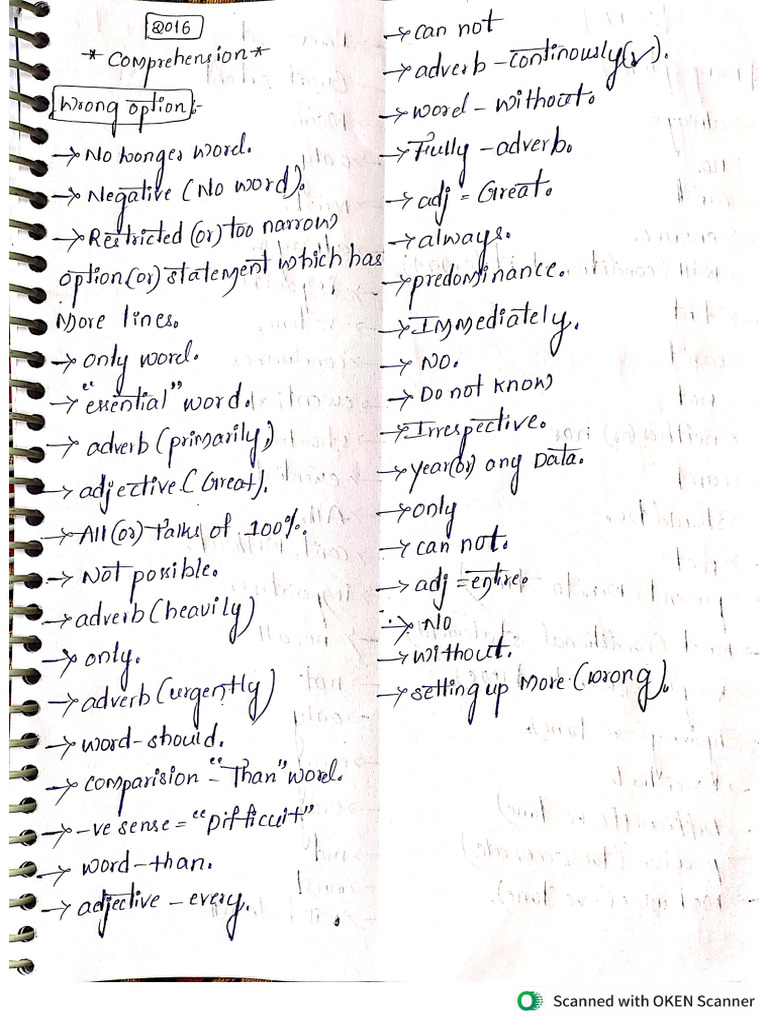 2016
*Comprehension*
Wrong option:-
→ No longer word.
→ Negative (No word).
→ Restricted (or) too narrow
option (or) statement which has
More lines.
→ only word.
→ "essential" word.
→ adverb (primarily,)
→ adjective.(Great).
→ All (or) talks of 100%.
→ Not possible.
→ adverb (heavily)
→ only.
→ adverb (urgently)
→ word-should.
→ comparision - "Than" word.
→ -ve sense = "Difficult"
→ word-than.
→ adjective - every.
→ can not
→ adverb - continously(✓).
→ word - without.
→ Fully - adverb.
→ adj = Great.
→ always.
→ predominance.
→ Immediately.
→ NO.
→ Do not know
→ Irrespective.
→ year(or) any Data.
→ only
→ can not.
→ adj = entire.
→ NO
→ without.
→ setting up More (wrong).
Scanned with OKEN Scanner